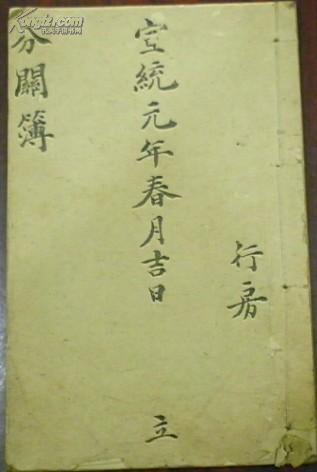 行房
宣統元年春月吉日 立
分關簿